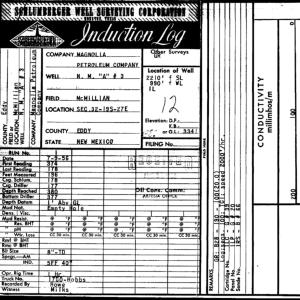 SCHLUMBERGER WELL SURVEYING CORPORATION
HOUSTON, TEXAS
Induction Log
COUNTY Eddy
FIELD or
LOCATION McMillian
WELL
COMPANY Magnolia Petroleum
Company
COMPANY MAGNOLIA
PETROLEUM COMPANY
WELL N. M. "A" # 3
FIELD McMILLIAN
LOCATION SEC.32-19S-27E
COUNTY EDDY
STATE NEW MEXICO
Other Surveys
Location of Well
2210' f SL
890' f WL
12
Elevation: D.F.:
K.B.:
or G.L.: 3341
FILING No.
RUN No.
Date 7-9-56
First Reading 374
Last Reading 178
Feet Measured 196
Csg. Schlum. 178
Csg. Driller 177
Depth Reached
Bottom Driller 377
Depth Datum Abv GL
Mud Nat. Empty Hole
Dens. | Visc.
Mud Resist.
" Res. BHT
" pH
" Wtr. Loss CC 30 min. CC 30 min. CC 30 min. CC 30 min.
Rmf @ BHT
Rmc @ BHT
Bit Size 8"-TD
Spcgs.—AM
IND. 5FF 40"
Opr. Rig Time 1 Hr.
Truck No. 1700-Hobbs
Recorded By Howe
Witness Milks
Oil Cons. Comm:
ARTESIA OFFICE
CONDUCTIVITY
millimhos/m
0
100
200